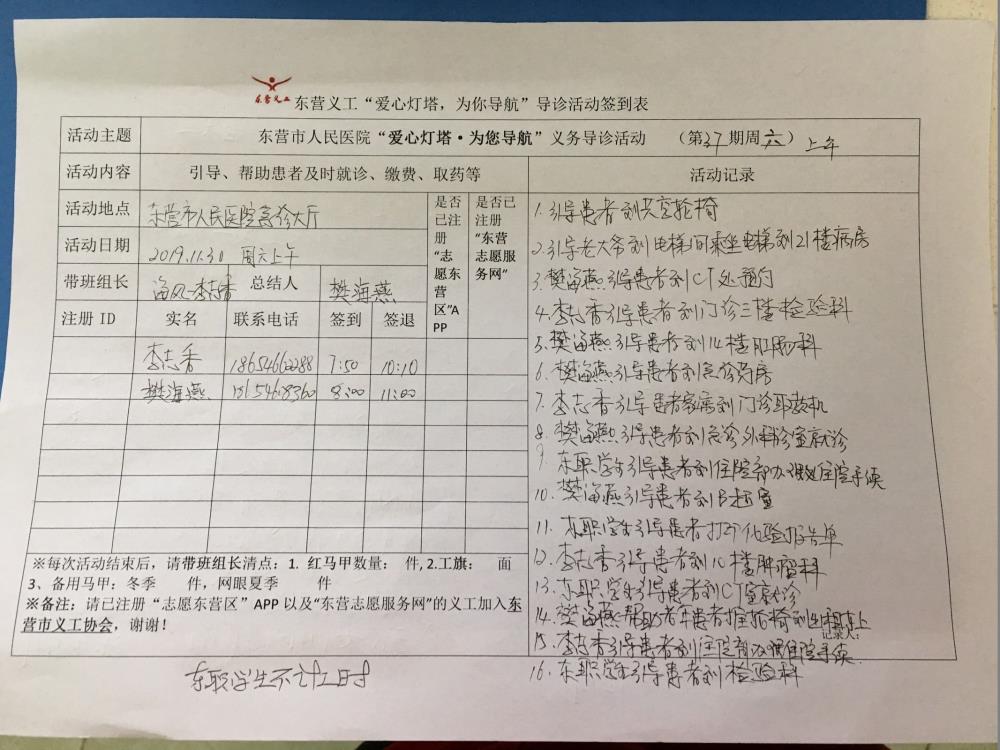 东营义工
东营义工“爱心灯塔，为你导航”导诊活动签到表
活动主题 东营市人民医院“爱心灯塔·为您导航”义务导诊活动 （第37期周六）上午
活动内容 引导、帮助患者及时就诊、缴费、取药等 活动记录
活动地点 东营市人民医院急诊大厅
活动日期 2019.11.30 周六上午
带班组长 海风-李志香 总结人 樊海燕
是否已注册“志愿东营区”APP
是否已注册“东营志愿服务网”
注册 ID 实名 联系电话 签到 签退
李志香 18654662288 7:50 10:10
樊海燕 8:00 11:00
1. 引导患者到共享轮椅
2. 引导老大爷到电梯间乘坐电梯到21楼病房
3. 樊海燕引导患者到CT处预约
4. 李志香引导患者到门诊三楼检验科
5. 樊海燕引导患者到 楼肛肠科
6. 樊海燕引导患者到急诊药房
7. 李志香引导患者家属到门诊取药机
8. 樊海燕引导患者到急诊外科诊室就诊
9. 东职学生引导患者到住院部办理住院手续
10. 樊海燕引导患者到B超室
11. 东职学生引导患者打印化验报告单
12. 李志香引导患者到 楼肿瘤科
13. 东职学生引导患者到CT室就诊
14. 樊海燕帮助老年患者推轮椅到 上
记录人：
15. 李志香引导患者到住院部办理住院手续
16. 东职学生引导患者到检验科
※每次活动结束后，请带班组长清点：1. 红马甲数量： 件, 2.工旗： 面
3、备用马甲：冬季 件，网眼夏季 件
※备注：请已注册“志愿东营区”APP 以及“东营志愿服务网”的义工加入东
营市义工协会，谢谢！
东职学生不计工时